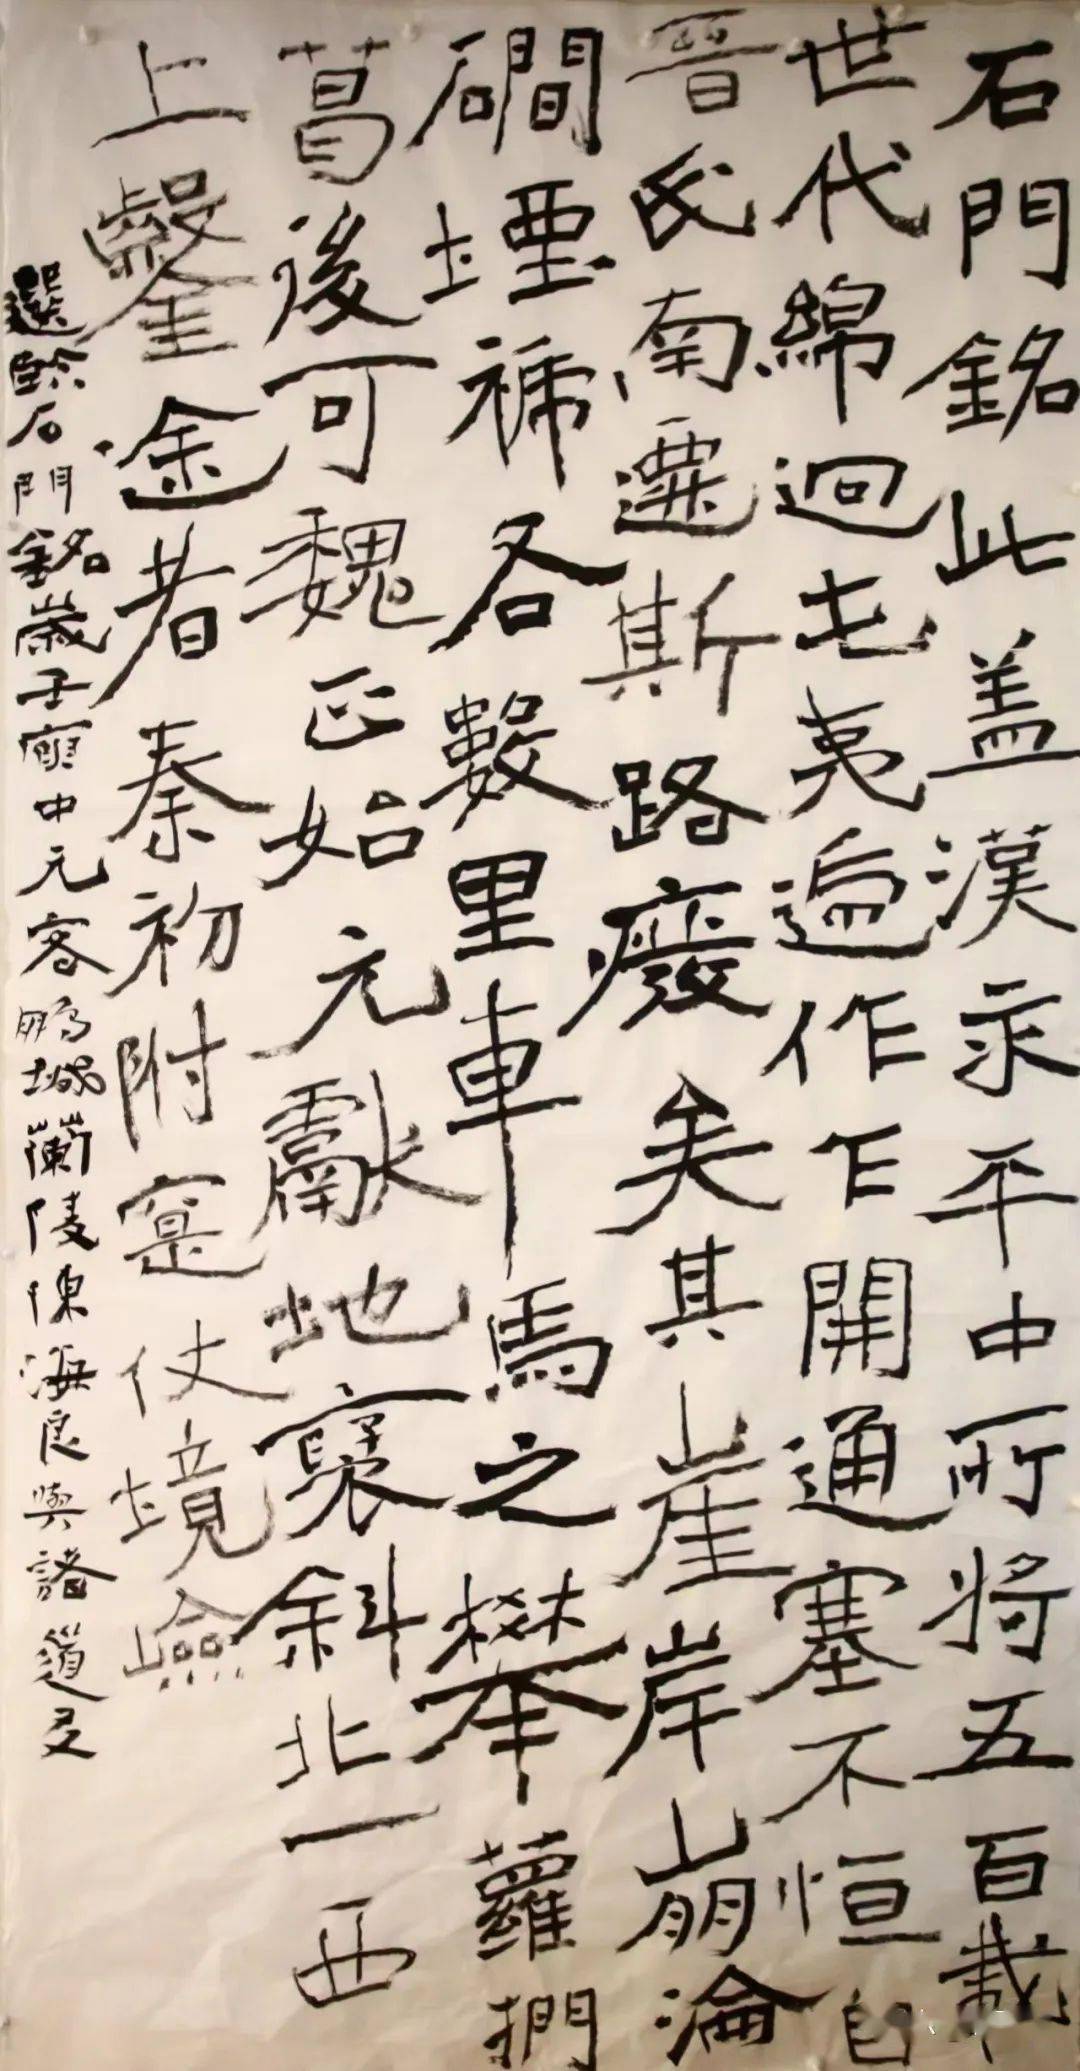 石門銘此盖漢永平中所將五百載
世代綿迴屯夷遞作乍開通塞不恒自
晉氏南遷斯路廢矣其崖岸崩淪
磵堙褫各數里車馬之攀蘿捫
葛後可魏正始元獻地褒斜北一西
上鑿途者秦初附寔仗境險
選臨石門銘歲壬寅中元客鵬城蘭陵陳海良與諸道友